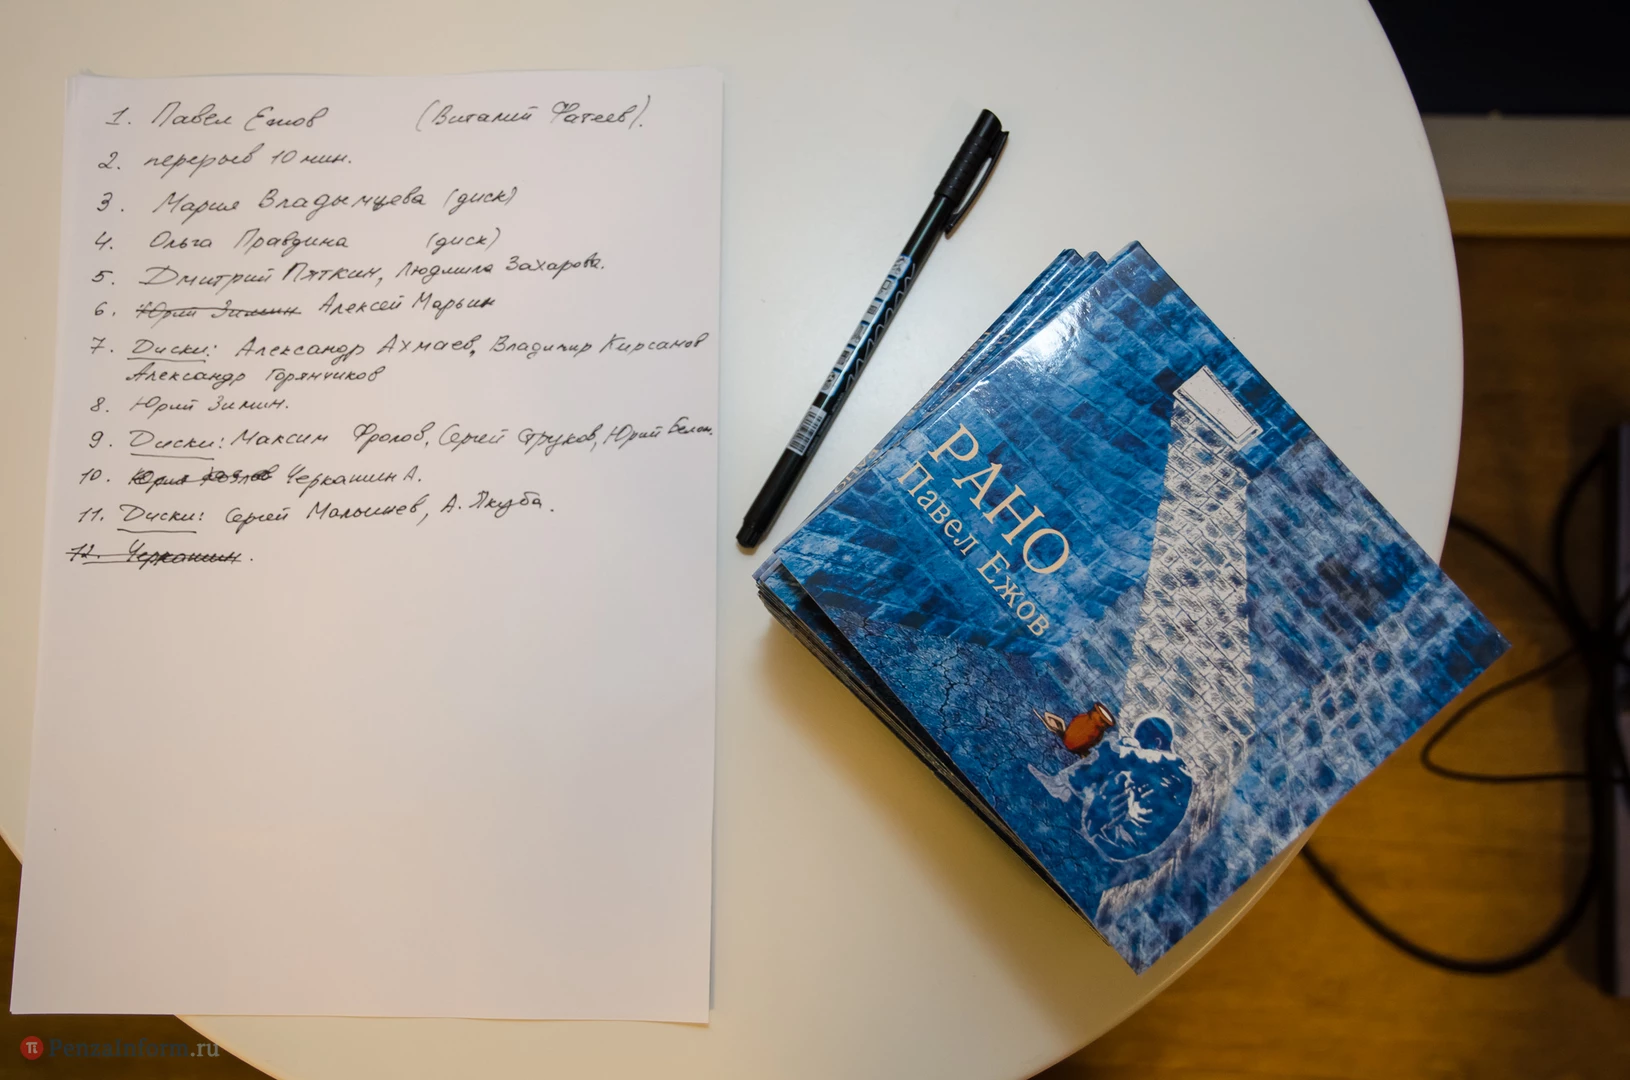 1. Павел Ежов (Виталий Фатеев).
2. перерыв 10 мин.
3. Мария Владымцева (диск)
4. Ольга Правдина (диск)
5. Дмитрий Пяткин, Людмила Захарова.
6. Юрий Зимин Алексей Марьин
7. Диски: Александр Ахмаев, Владимир Кирсанов
Александр Горячиков
8. Юрий Зимин.
9. Диски: Максим Фролов, Сергей Струков, Юрий Белон.
10. Юрий Козлов Черкашин А.
11. Диски: Сергей Малышев, А. Якуба.
12. Черкашин.
РАНО
Павел Ежов
PenzaInform.ru